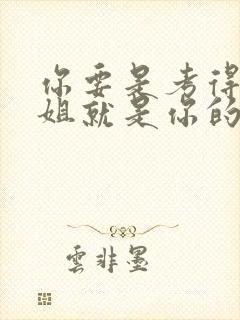 你要是考得
姐就是你的
雲非墨